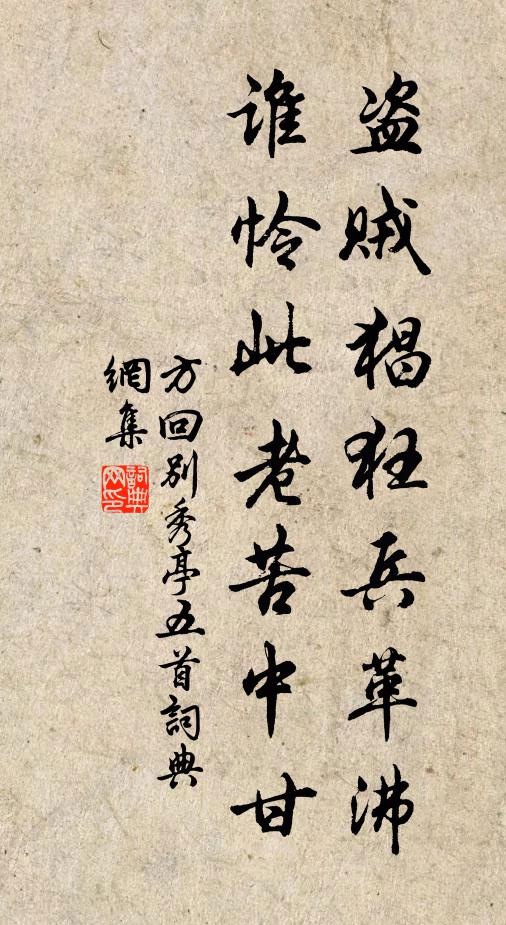 盗贼猖狂兵革沸
谁怜此老苦中甘
方回别秀亭五首詞典
網集
詞典
网印